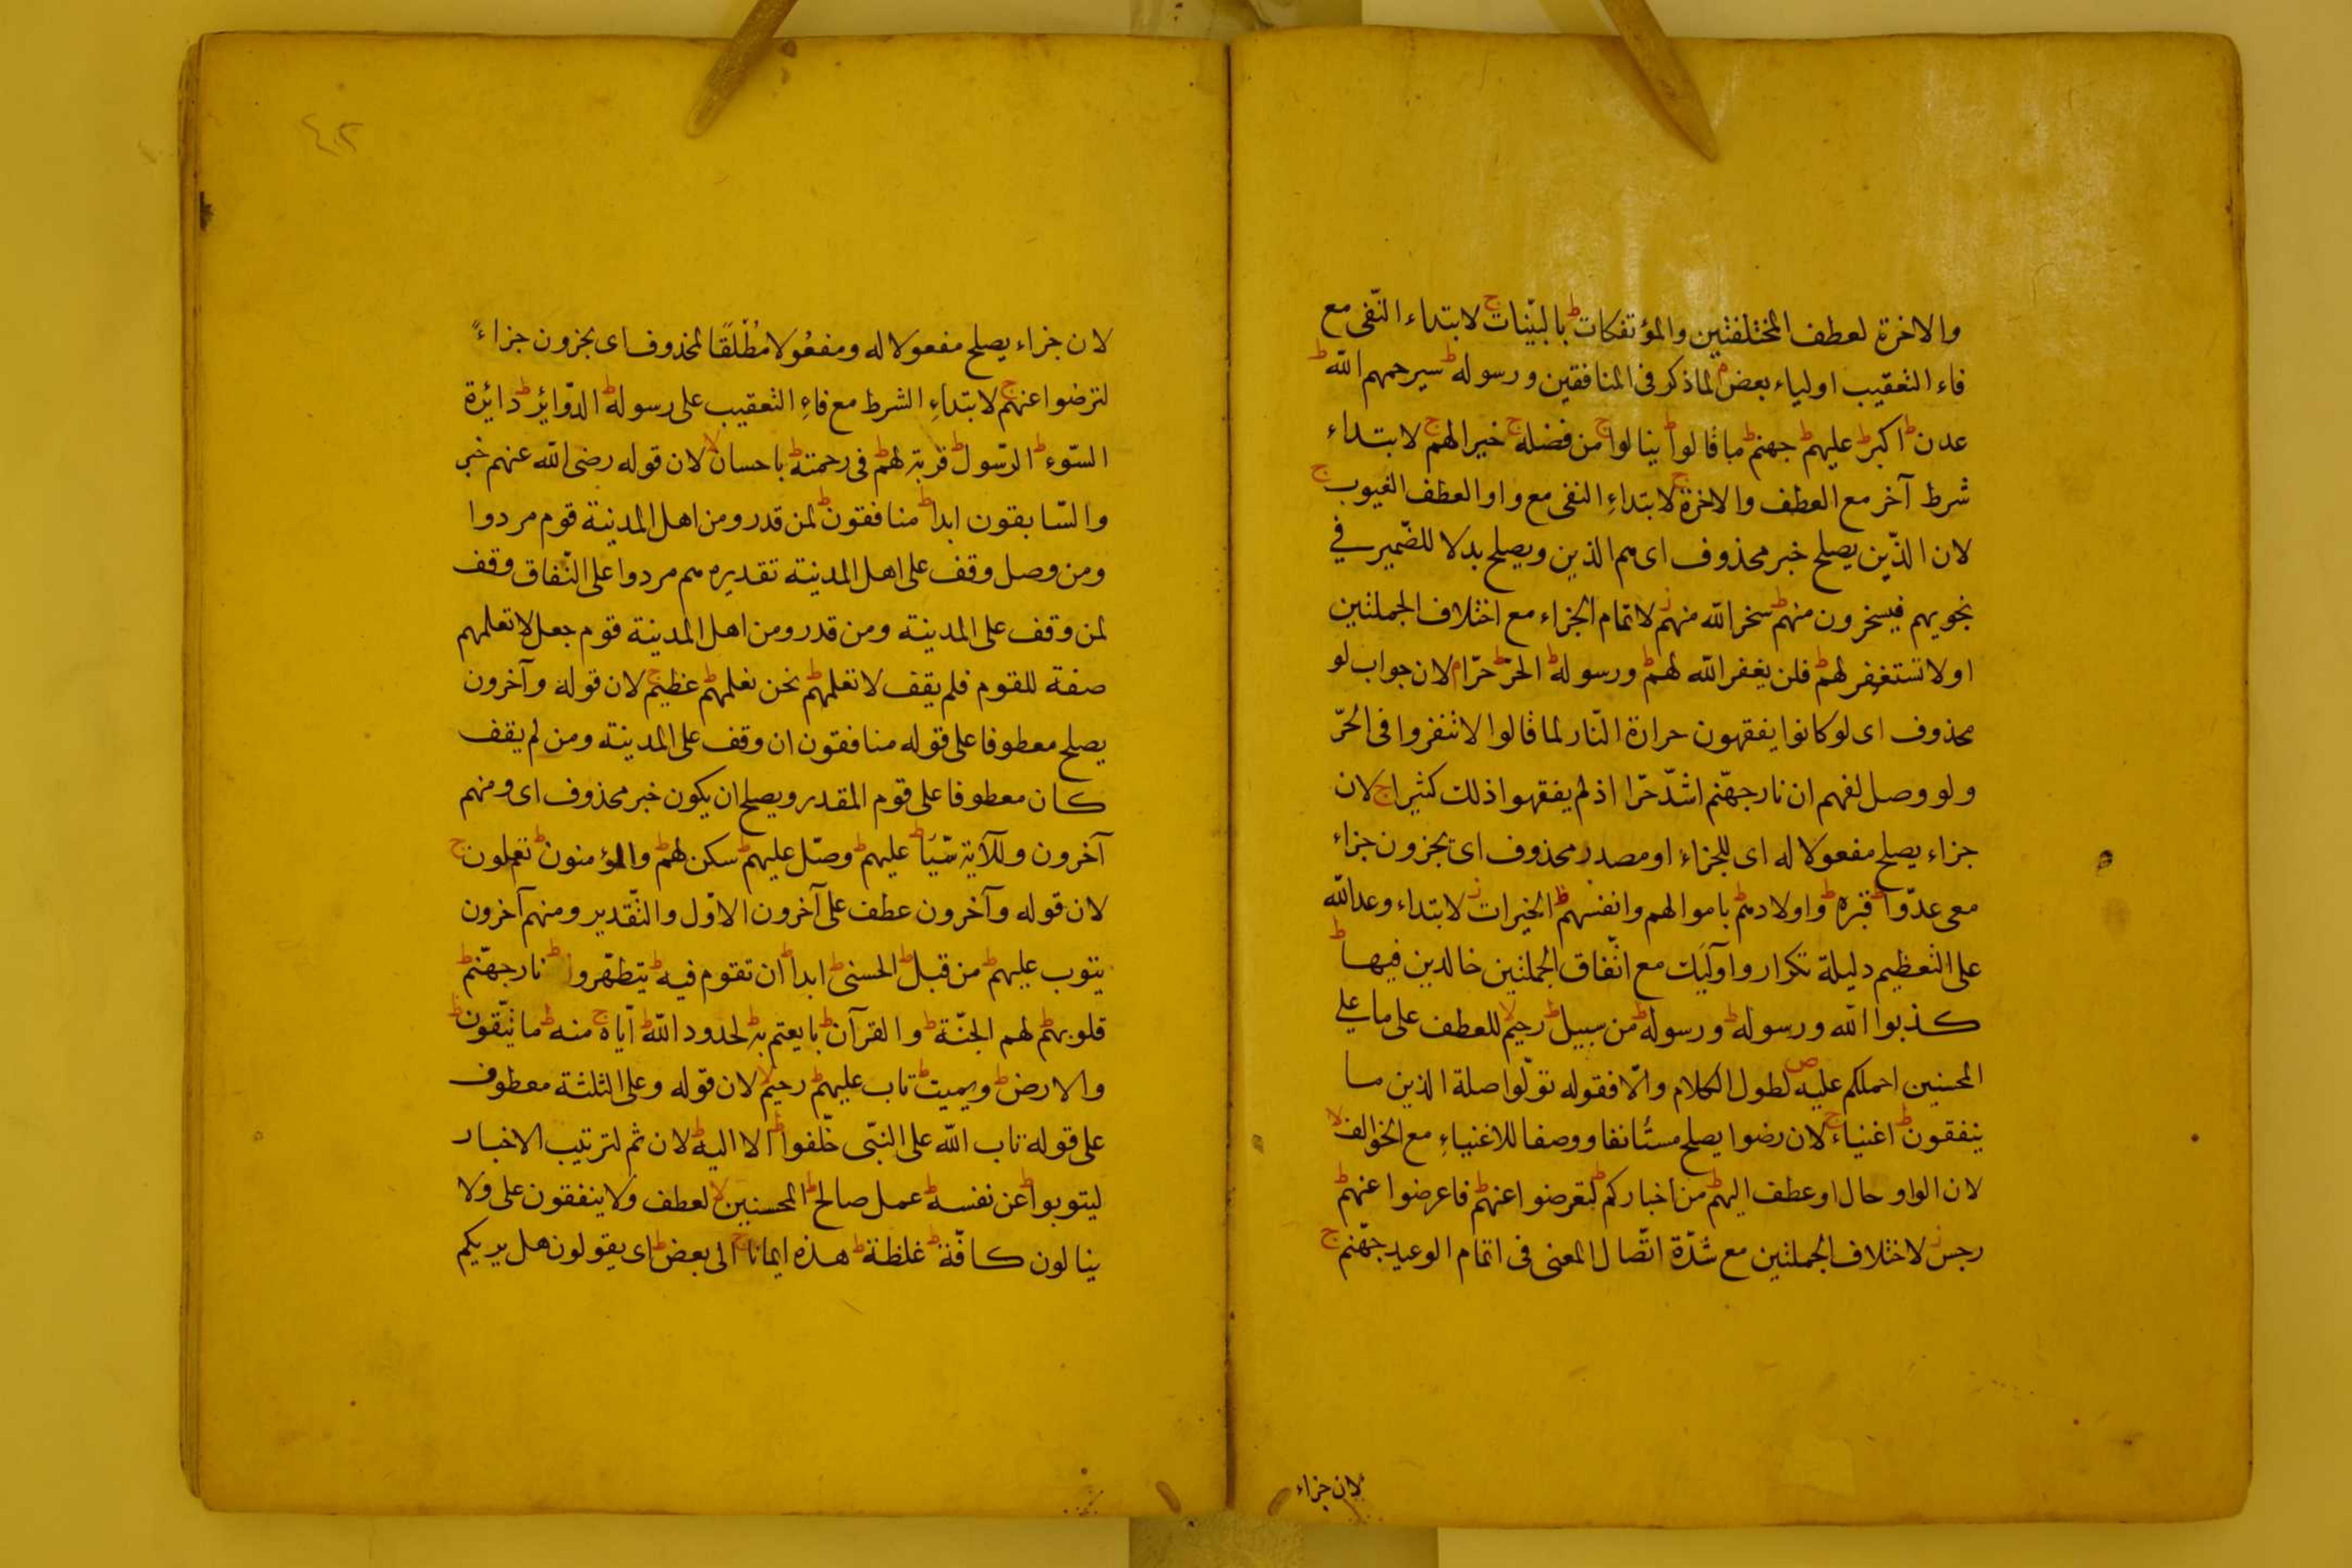 والاخرة لعطف المختلفتين والمؤتفكات ط بالبيّنات ج لابتداء النّفى مع
فاء التعقيب اولياء بعض م لماذكر فى المنافقين ورسوله ط سيرحمهم الله ط
عدن ط اكبر ط عليهم ط جهنم ط ماقالوا ط ينالوا ج من فضله ج خيرا لهم ج لابتداء
شرط آخر مع العطف والاخرة ج لابتداءِ النفى مع واو العطف الغيوب ج
لان الذّين يصلح خبر محذوف اى هم الذين ويصلح بدلا للضّمير في
نجويهم فيسخرون منهم ط سخر الله منهم ز لاتمام الجزاء مع اختلاف الجملتين
اولا تستغفر لهم ط فلن يغفر الله لهم ط ورسوله ط الحرّ ط حرّا م لان جواب لو
محذوف اى لو كانوا يفقهون حرارة النّار لما قالوا لاتنفروا فى الحرّ
ولو وصل لفهم ان نار جهنّم اشدّ حرّا اذ لم يفقهوا ذلك كثيرا ج لان
جزاء يصلح مفعولا له اى للجزاء او مصدر محذوف اى يجزون جزاء
معى عدوّا ط قبره ط واولادهم ط باموالهم وانفسهم ط الخيرات ز لابتداء وعد الله
على التعظيم دليلة تكرار واولَئِك مع اتّفاق الجملتين خالدين فيها ط
كذبوا الله ورسوله ط ورسوله ط من سبيل ط رحيم لا للعطف على ما على
المحسنين احملكم عليه ص لطول الكلام والّا فقوله تولّوا صلة الذين ما
ينفقون ط اغنياء ج لان رضوا يصلح مستأنفا ووصفا للاغنياءِ مع الخوالف لا
لان الواو حال او عطف اليهم ط من اخباركم ط لتعرضوا عنهم ط فاعرضوا عنهم ط
رجس ز لاختلاف الجملتين مع شدّة اتّصال المعنى فى اتمام الوعيد جهّنم ج
لان جزاء
٤٢
لان جزاء يصلح مفعولا له ومفعُولا مُطْلَقًا لمحذوف اى يجزون جزاءً
لترضوا عنهم ج لابتداءِ الشرط مع فاءِ التعقيب على رسوله ط الدّوائر ط دائرة
السّوءِ ط الرّسول ط قربة لهم ط فى رحمته ط باحسان لا لان قوله رضى الله عنهم خبر
والسّابقون ابدا ط منافقون ط لمن قدر ومن اهل المدينة قوم مردوا
ومن وصل وقف على اهل المدينة تقديره هم مردوا على النّفاق وقف
لمن وقف على المدينة ومن قدر ومن اهل المدينة قوم جعل لاتعلمهم
صفة للقوم فلم يقف لا تعلمهم ط نحن نعلمهم ط عظيم ج لان قوله وآخرون
يصلح معطوفا على قوله منافقون ان وقف على المدينة ومن لم يقف
كان معطوفا على قوم المقدر ويصلح ان يكون خبر محذوف اى ومنهم
آخرون وللآية سّيَّا ط عليهم ط وصّل عليهم ط سكن لهم ط والمؤمنون ط تعملون ج
لان قوله وآخرون عطف على آخرون الاوّل والتّقدير ومنهم آخرون
يتوب عليهم ط من قبل ط الحسنى ط ابدا ط ان تقوم فيه ط يتطهّروا ط نار جهنّم ط
قلوبهم ط لهم الجنّة ط والقرآن ط بايعتم به ط لحدود الله ط آياه ج منه ط مايتّقون ط
والارض ط ويميت ط تاب عليهم ط رحيم لا لان قوله وعلى الثلثة معطوف
على قوله تاب الله على النبّى خلّفوا ط الا اليه ط لان ثم لترتيب الاخبار
ليتوبوا ط عن نفسه ط عمل صالح ط المحسنين لا لعطف ولاينفقون على ولا
ينالون كافّة ط غلظة ط هذه ايمانا ج الى بعض ط اى يقولون هل يريكم